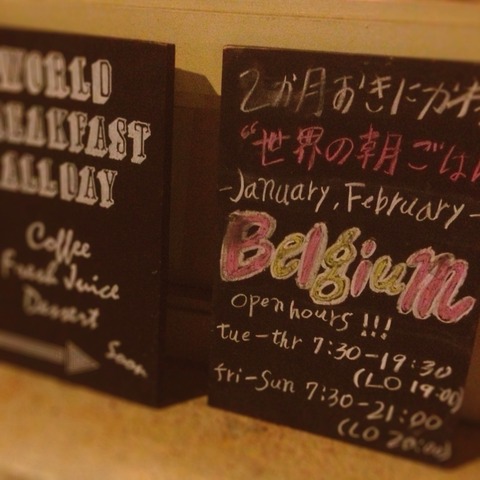 WORLD
BREAKFAST
ALLDAY
Coffee
Fresh Juice
Dessert
5min
2か月おきにかわ
"世界の朝ごはん
-January, February-
Belgium
open hours !!!
tue-thr 7:30-19:30
(LO 19:00)
fri-sun 7:30-21:00
(LO 20:00)